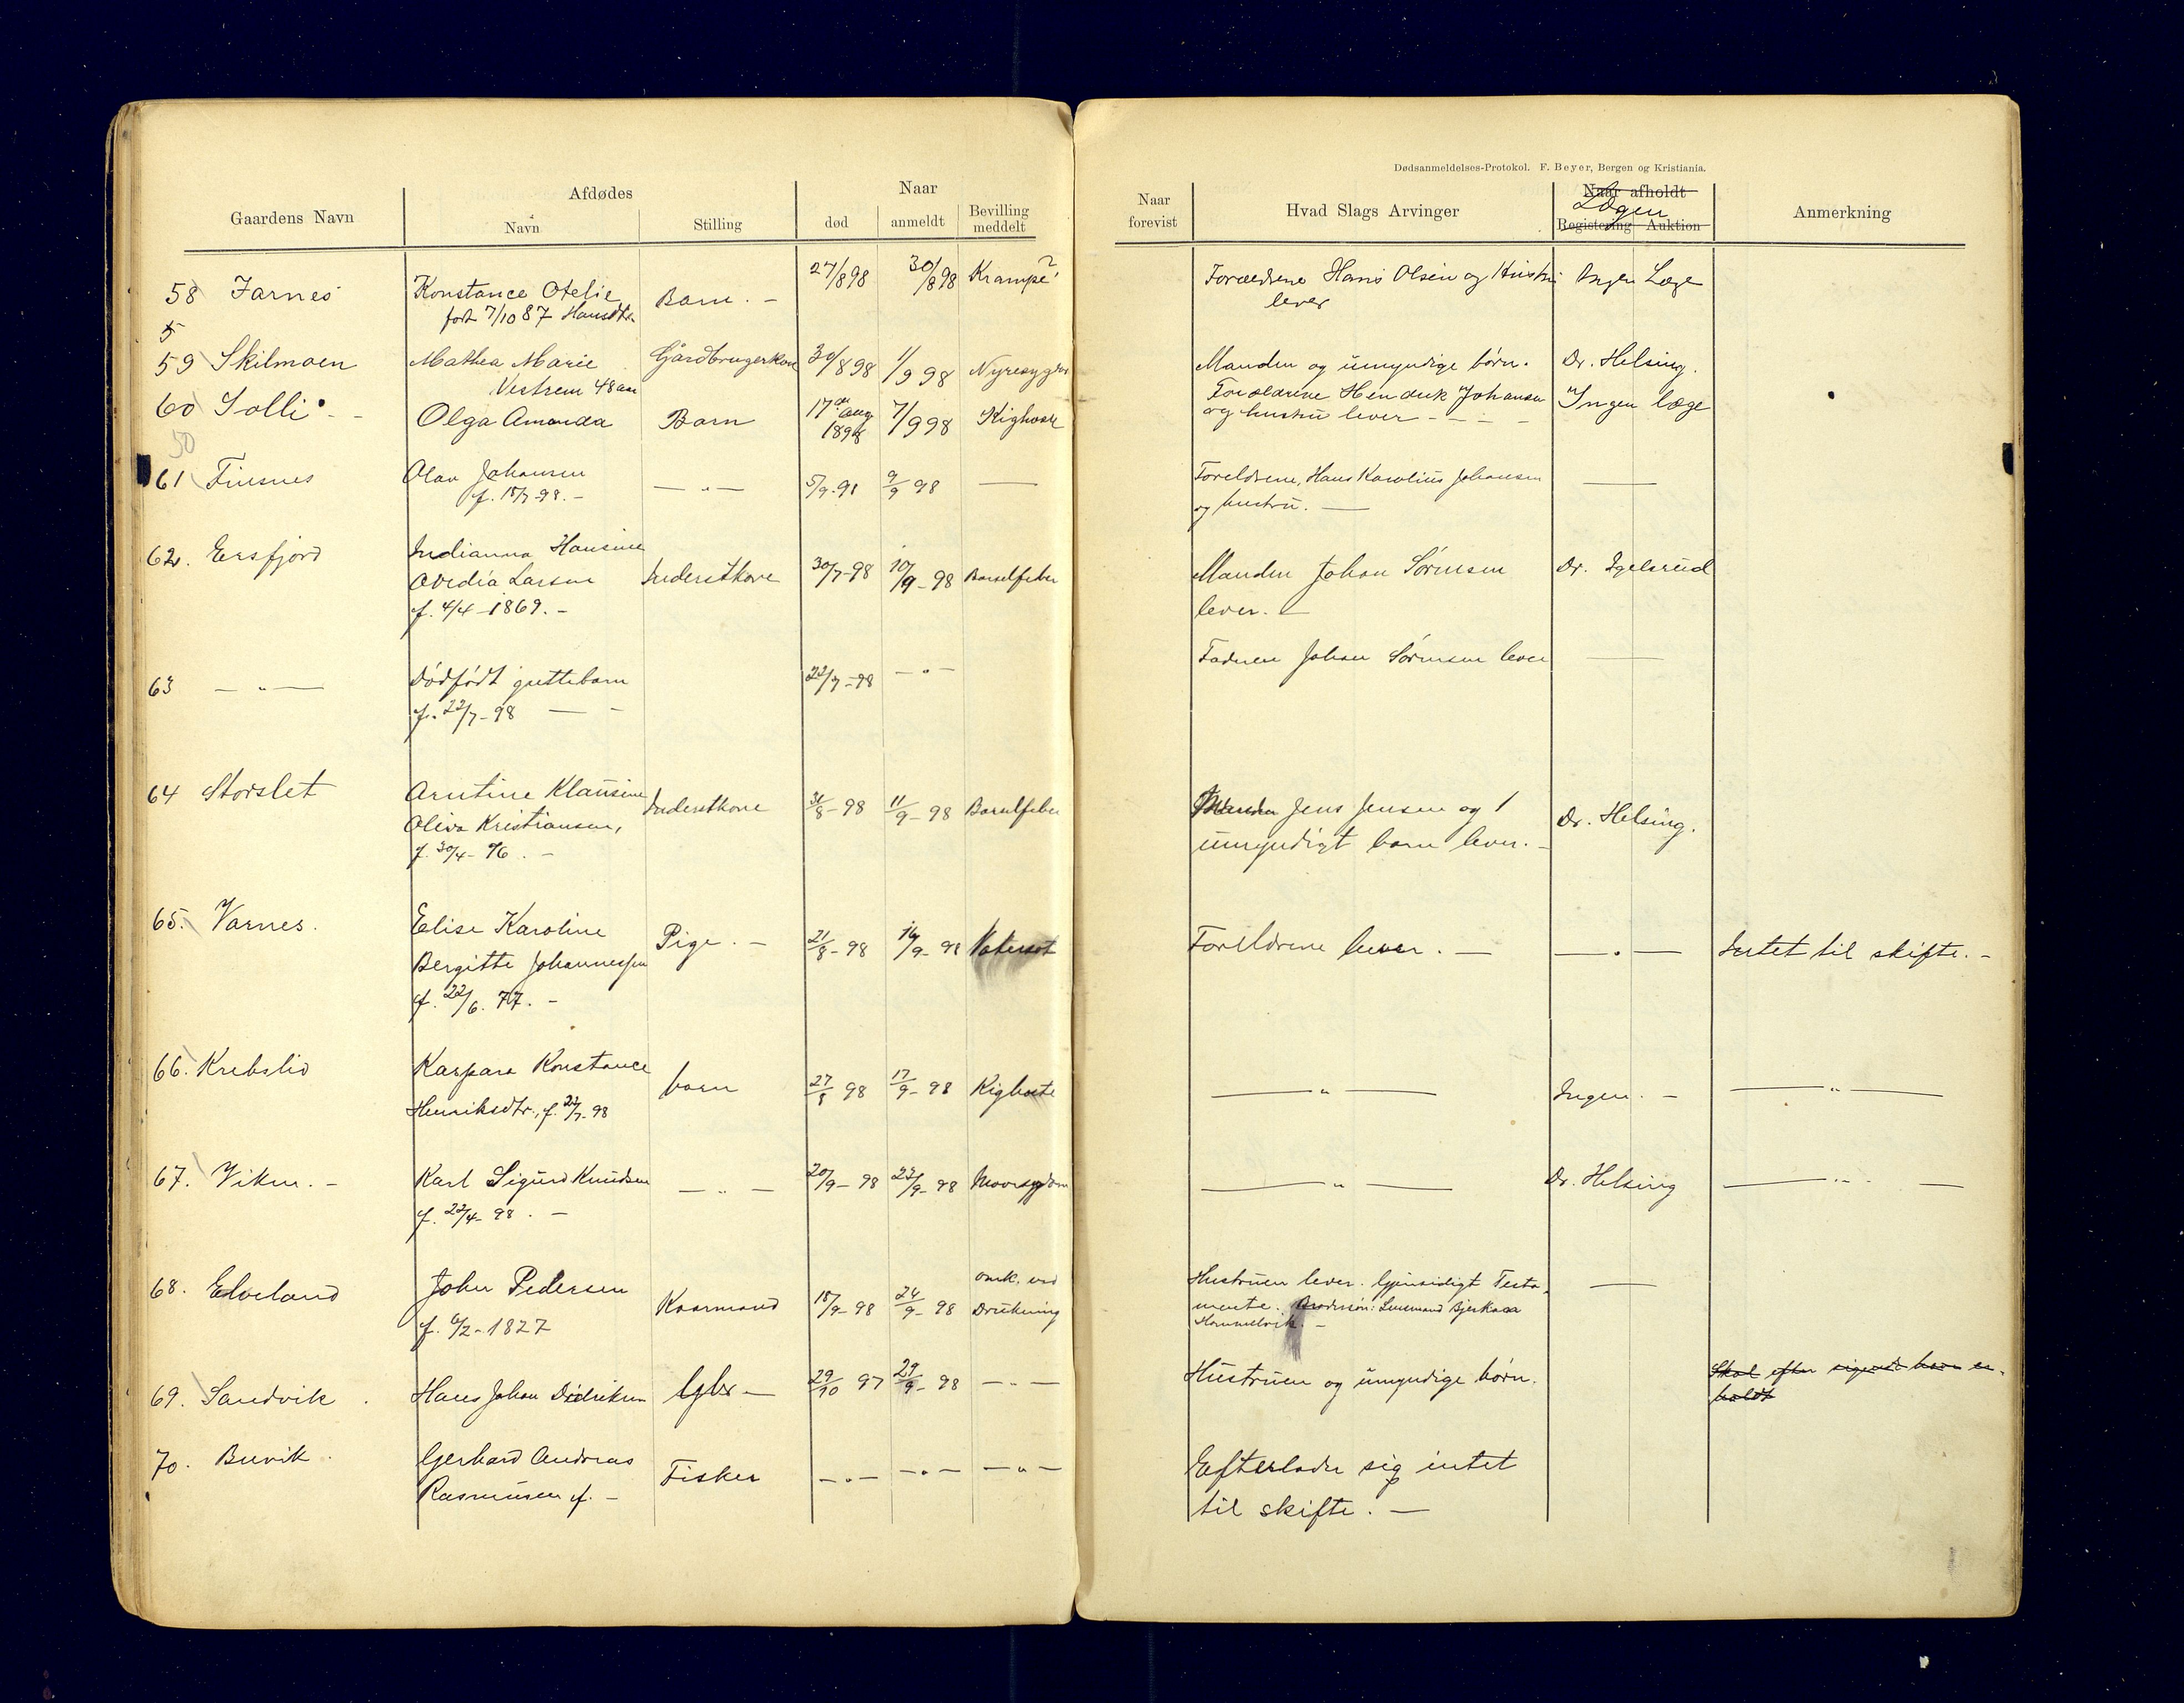 Dødsanmeldelses-Protokol. F. Beyer, Bergen og Kristiania.
Gaardens Navn
Afdødes
Navn
Stilling
Naar
død
anmeldt
Bevilling meddelt
Naar forevist
Hvad Slags Arvinger
Naar afholdt
Lægen
Registering Auktion
Anmerkning
58 Jarnes Konstance Otelie Barn. - 27/8 98 30/8 98 Krampe? Forældrene Hans Olsen og Hustru Ingen Læge
født 7/10 87 Hansdtr. lever
5
59 Skilmoen Mathea Marie Gårdbrugerkone 30/8 98 1/9 98 Nyresygdom Manden og umyndige børn. Dr. Helsing.
Vestrem 48 aar
60 Solli - Olga Amanda Barn 17de Aug 1898 7/9 98 Kighoste Forældrene Hendrik Johansen Ingen læge
og hustru lever - - -
50
61 Finsnes Olav Johansen — " — 5/9-98 9/9 98 — Foreldrene, Hans Karolius Johansen —
f. 18/7-98. - og hustru. —
62. Ersfjord Indianna Hansine
Ovedia Larsen Inderstkone 30/7-98 10/9-98 Barselfeber Manden Johan Sörensen Dr. Igelsrud
f. 4/4-1869. - lever. —
63 — " — Dödfödt guttebarn 22/7-98 — " — Faderen Johan Sörensen lever —
f. 22/7-98 — -
64 Storslet Arntine Klausine Inderstkone 31/8-98 11/9-98 Barselfeber Manden Jens Jensen og 1 Dr. Helsing.
Oliva Kristiansen, umyndigt barn lever. -
f. 30/4-76. -
65. Varnes. Elise Karoline
Bergitte Johannessen Pige. - 21/8-98 14/9-98 Vatersot Foreldrene lever. — — " — Intet til skifte. -
f. 22/6. 77. -
66. Krebslid Kaspara Konstance barn 27/8 98 17/9-98 Kighoste — " — Ingen. - — " —
Henriksdtr., f. 22/7-98
67. Viken. - Karl Sigurd Knudsen — " — 20/9-98 23/9-98 — " — Dr. Helsing — " —
f. 22/4-98. -
68. Elveland John Pedersen Kaarmand 18/9-98 24/9-98 omk. ved Drukning Hustruen lever. Gjensidigt Testa- —
f. 6/2-1827 mente. Brodersön: Lensmand Bjerkaas
Hommelvik. -
69. Sandvik. Hans Johan Didriksen Gbr - 29/10 97 29/9-98 — " — Hustruen og umyndige börn. Skal efter sigende have en-
holdt
70. Buvik. Gerhard Andreas Fisker — " — — " — — " — Efterlader sig intet
Rasmussen f. - til skifte. —